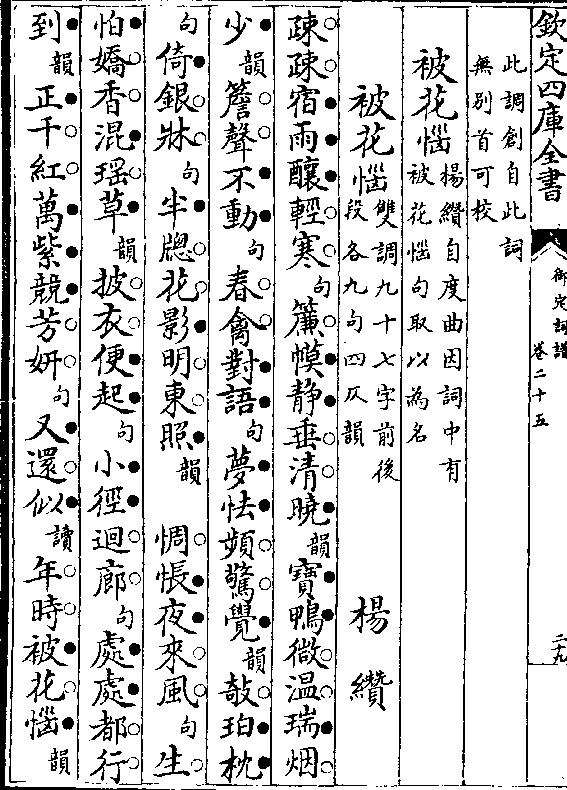 欽定四庫全書
御定詞譜 卷二十五
二十九
此調創自此詞
無別首可校
被花惱 楊纘自度曲因詞中有
被花惱句取以為名
被花惱 雙調九十七字前後
段各九句四仄韻
楊纘
疎疎宿雨釀輕寒句簾幙静垂清曉韻寶鴨微温瑞烟
少韻簷聲不動句春禽對語句夢怯頻驚覺韻攲珀枕
句倚銀牀句半牕花影明東照韻 惆悵夜來風句生
怕嬌香混瑶草韻披衣便起句小徑迴廊句處處都行
到韻正千紅萬紫競芳妍句又還似讀年時被花惱韻